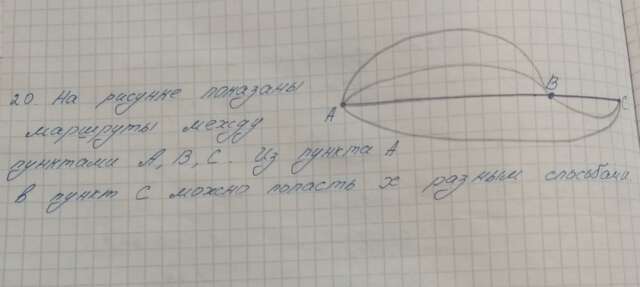 20. На рисунке показаны
маршруты между
пунктами А, В, С. Из пункта А
в пункт С можно попасть х разным способами
А
В
С